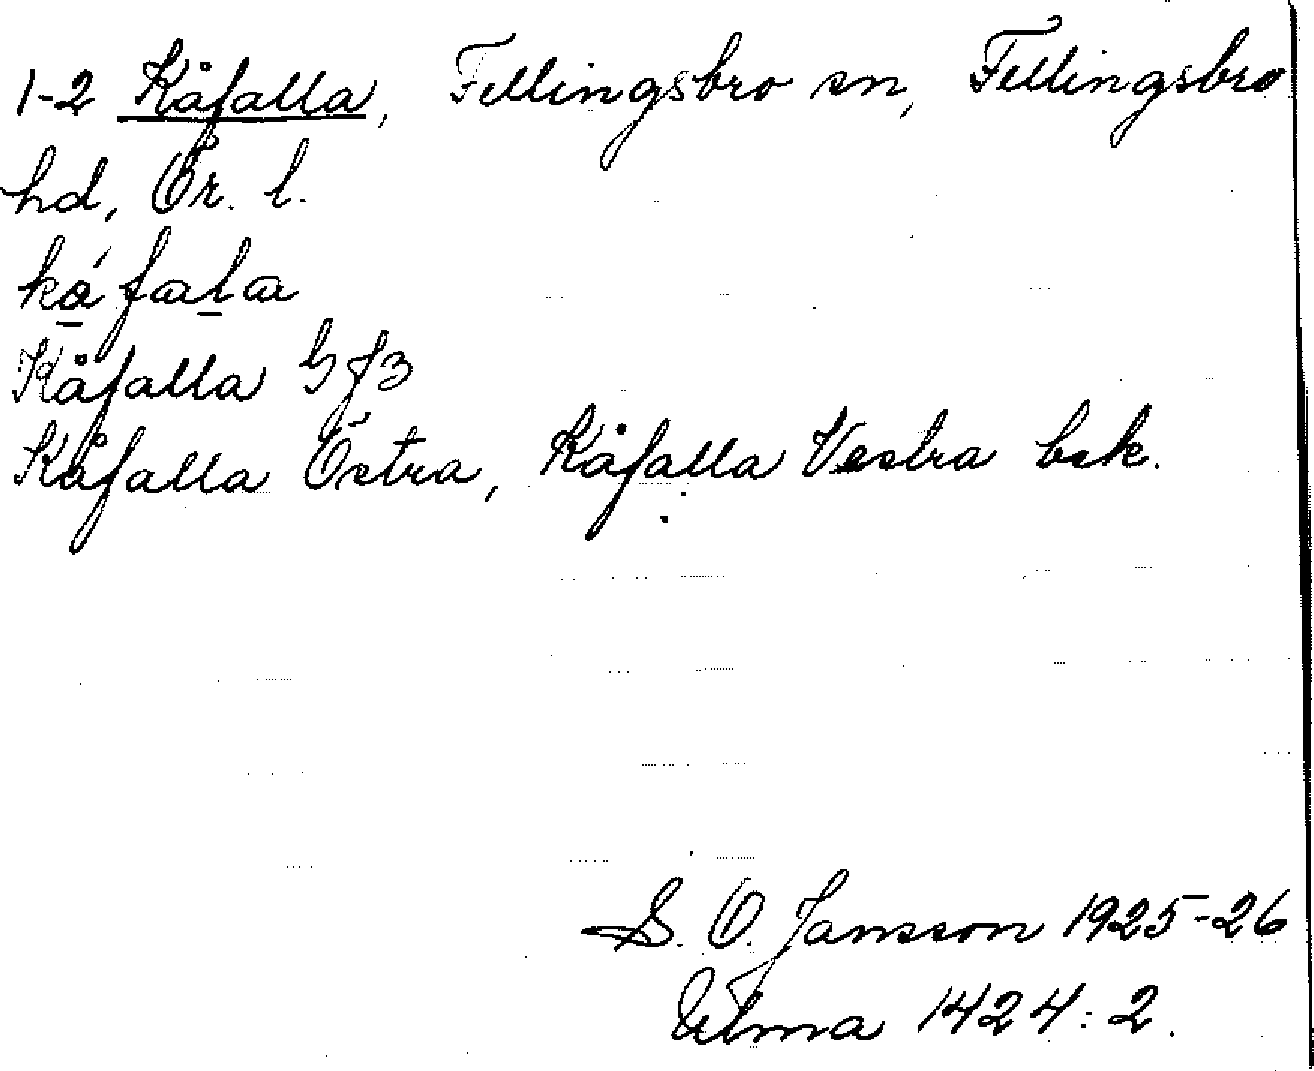 1-2 Kåfalla, Fellingsbro sn, Fellingsbro
hd, Ör. l.
kǻfala
Kåfalla
Kåfalla Östra, Kåfalla Vestra bsk.
S. O. Jansson 1925-26
Ulma 1424:2.